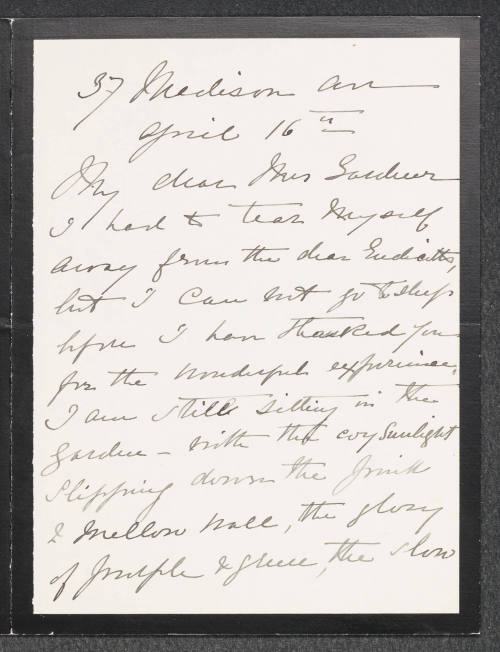 37 Madison Av
April 16th
My dear Mrs Gardner
I had to tear myself
away from the dear Endicotts,
but I can not go to sleep
before I have thanked you
for the wonderful experience.
I am still sitting in the
garden - with the coy sunlight
slipping down the pink
& mellow wall, the glory
of purple & green, the slow